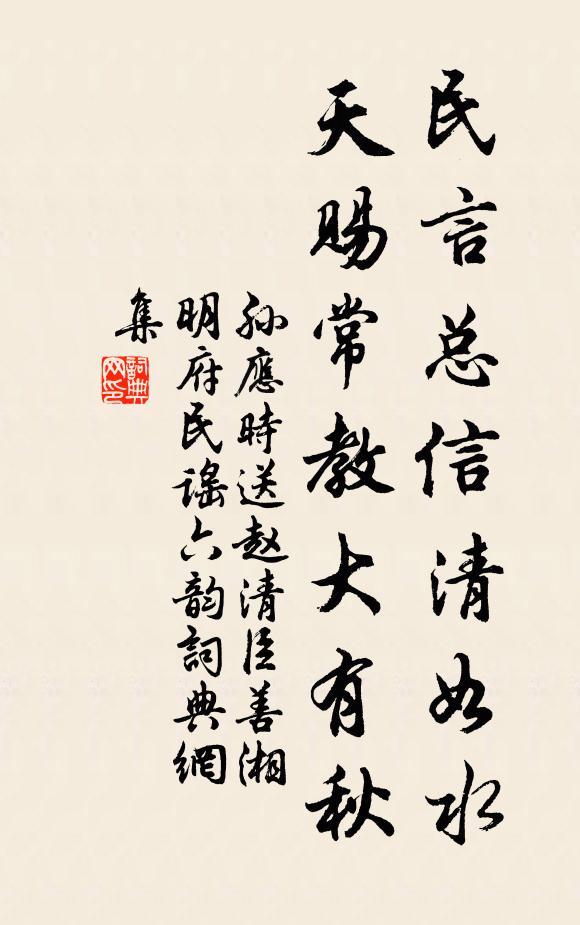 民言总信清如水
天赐常教大有秋
孙應時送赵清臣善湘
明府民謠六韵詞典網
集
詞典網印